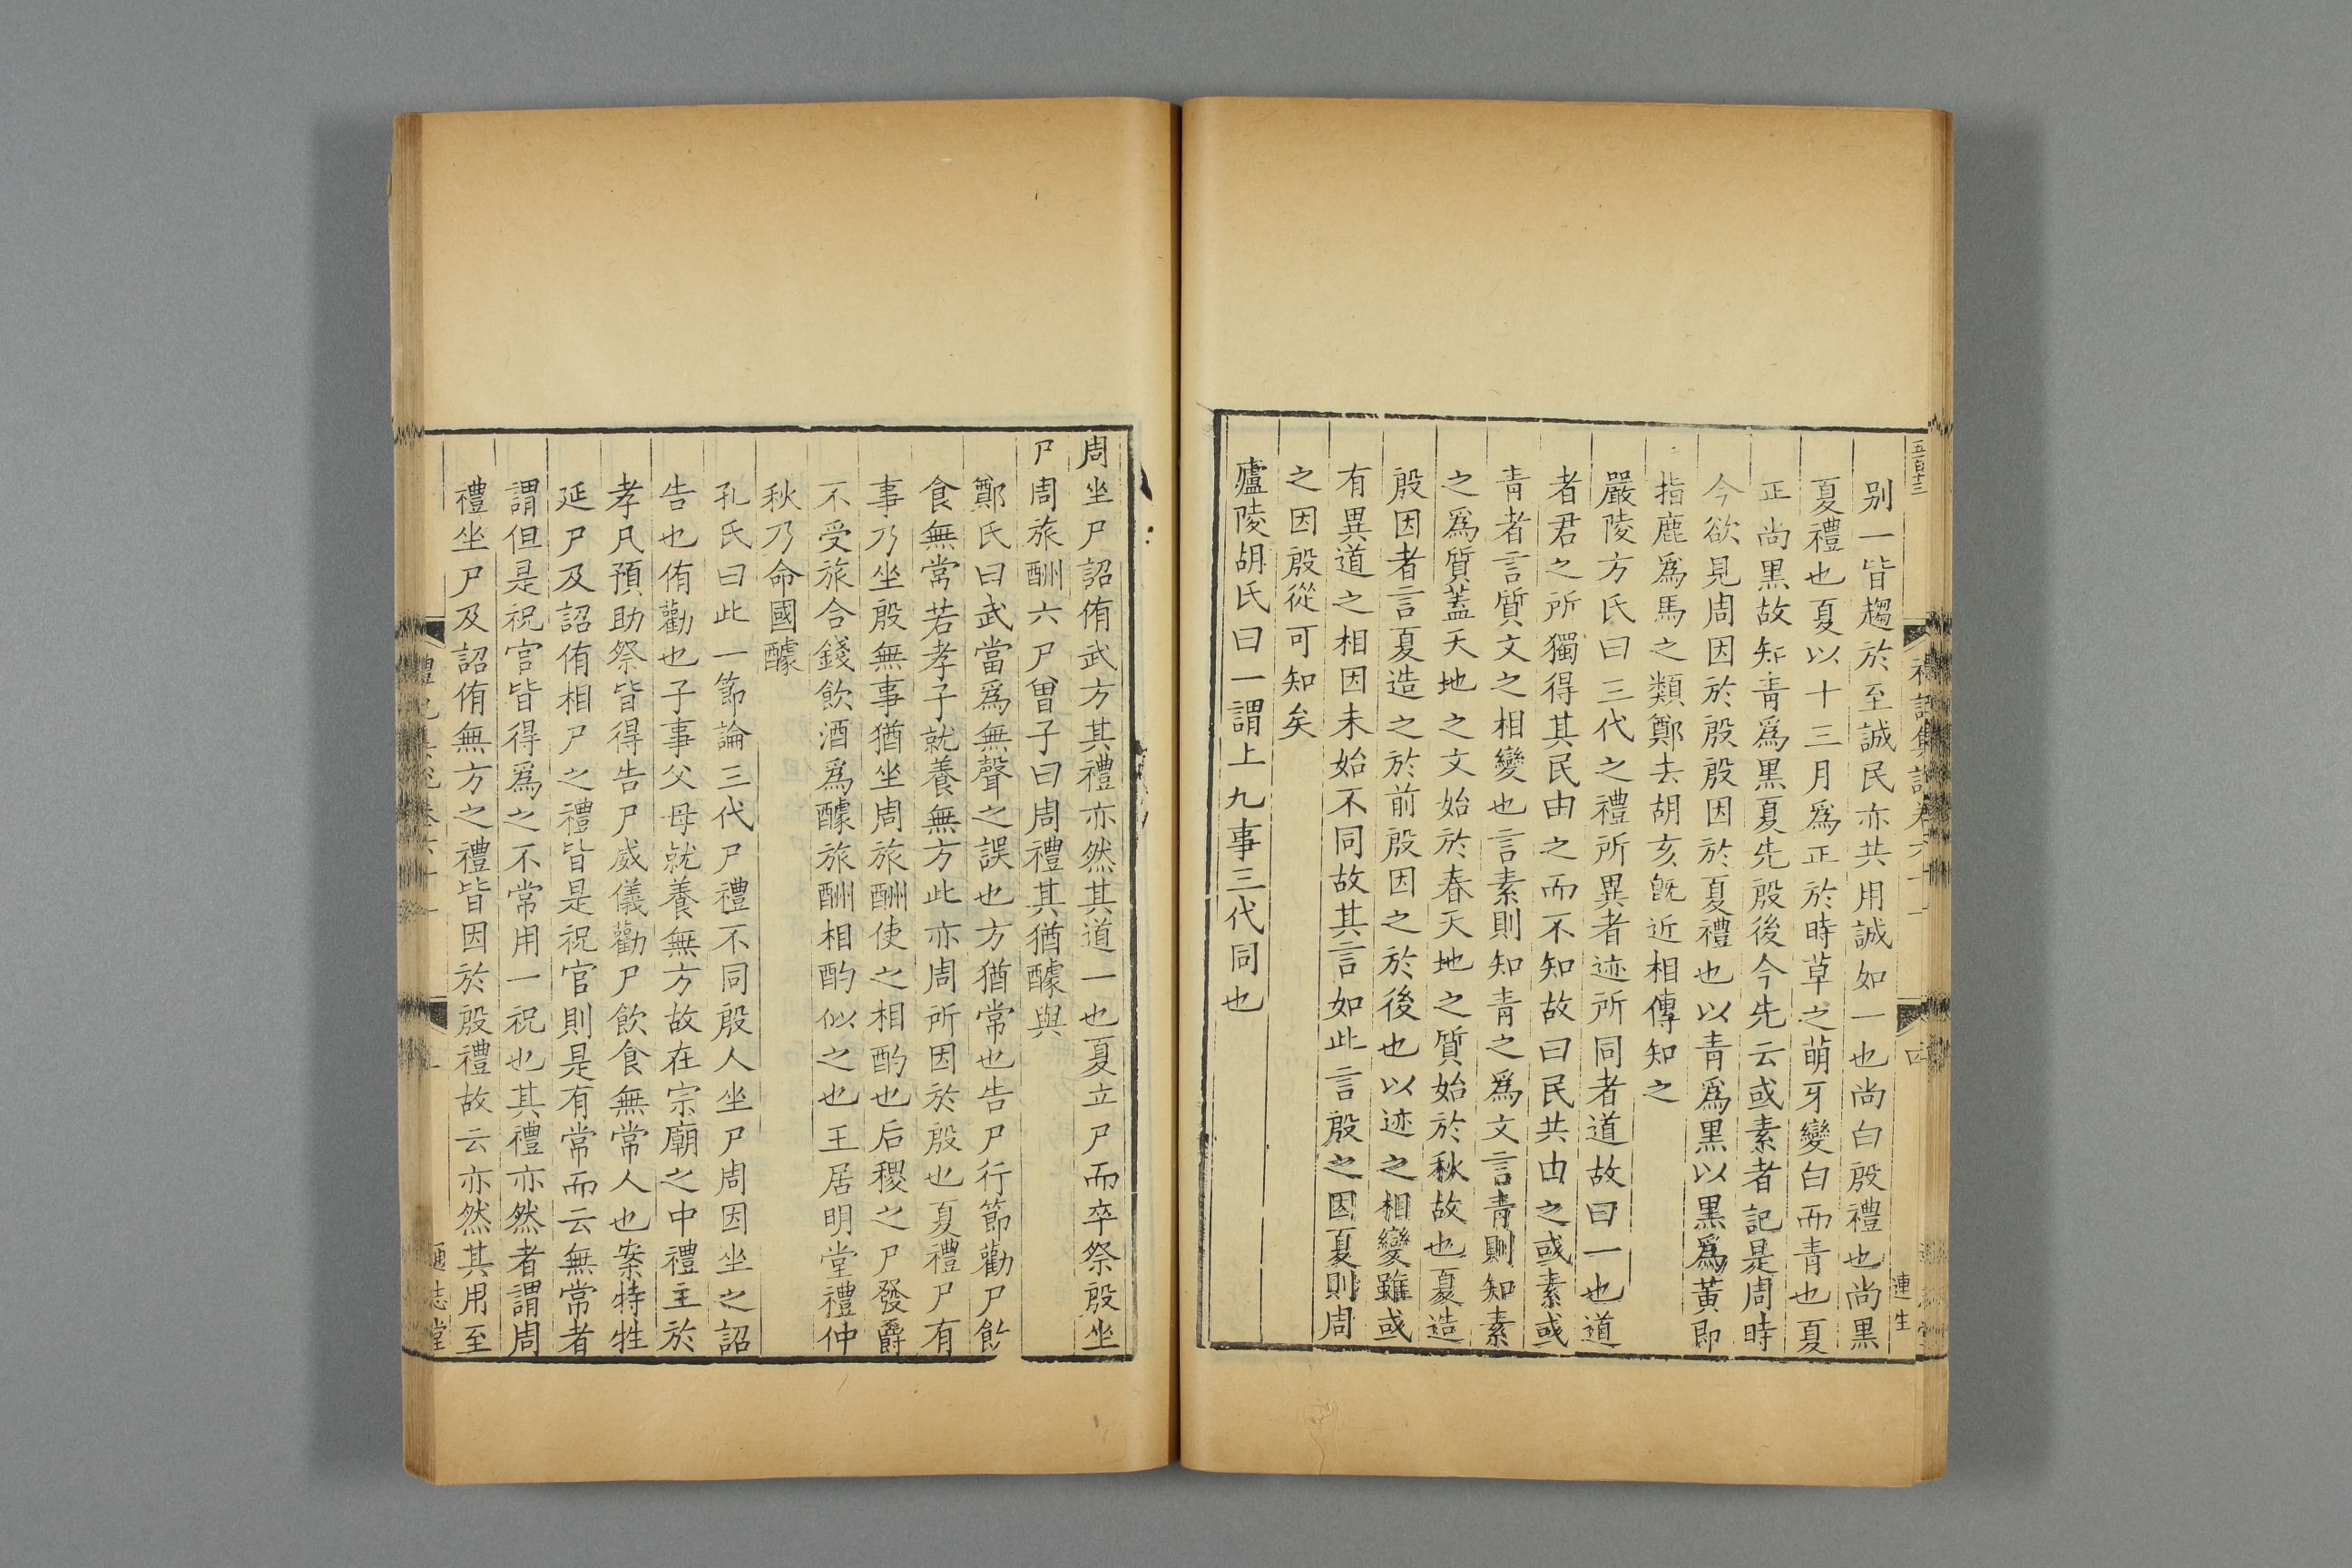 五百十三
别一皆趨於至誠民亦共用誠如一也尚白殷禮也尚黒
夏禮也夏以十三月爲正於時草之萌牙變白而青也夏
正尚黒故知青爲黒夏先殷後今先云或素者記是周時
今欲見周因於殷殷因於夏禮也以青爲黒以黒爲黃即
指鹿爲馬之類鄭去胡亥旣近相傳知之
嚴陵方氏曰三代之禮所異者迹所同者道故曰一也道
者君之所獨得其民由之而不知故曰民共由之或素或
青者言質文之相變也言素則知青之爲文言青則知素
之爲質蓋天地之文始於春天地之質始於秋故也夏造
殷因者言夏造之於前殷因之於後也以迹之相變雖或
有異道之相因未始不同故其言如此言殷之因夏則周
之因殷從可知矣
廬陵胡氏曰一謂上九事三代同也
禮記集說卷六十一
四
連生
周坐尸詔侑武方其禮亦然其道一也夏立尸而卒祭殷坐
尸周旅酬六尸曾子曰周禮其猶醵與
鄭氏曰武當爲無聲之誤也方猶常也告尸行節勸尸飲
食無常若孝子就養無方此亦周所因於殷也夏禮尸有
事乃坐殷無事猶坐周旅酬使之相酌也后稷之尸發爵
不受旅合錢飲酒爲醵旅酬相酌似之也王居明堂禮仲
秋乃命國醵
孔氏曰此一節論三代尸禮不同殷人坐尸周因坐之詔
告也侑勸也子事父母就養無方故在宗廟之中禮主於
孝凡預助祭皆得告尸威儀勸尸飲食無常人也案特牲
延尸及詔侑相尸之禮皆是祝官則是有常而云無常者
謂但是祝官皆得爲之不常用一祝也其禮亦然者謂周
禮坐尸及詔侑無方之禮皆因於殷禮故云亦然其用至
通志堂